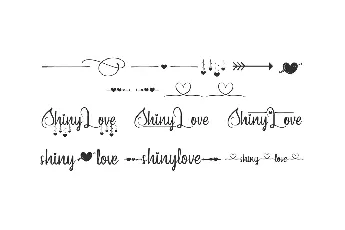 Shiny Love Shiny Love Shiny Love
shiny love shinylove shiny love